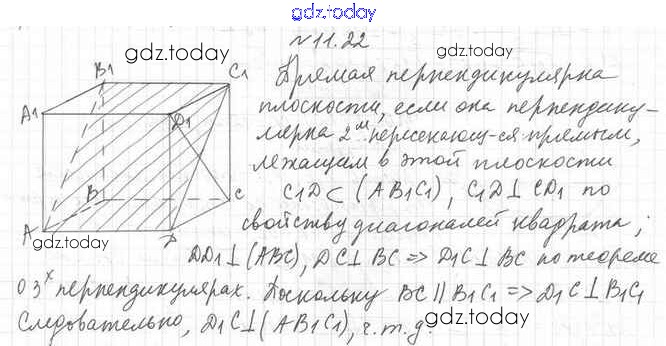 gdz.today
№ 11.22
gdz.today
gdz.today
B1
C1
A1
D1
B
C
A
D
gdz.today
Прямая перпендикулярна
плоскости, если она перпендику-
лярна 2м пересекающ-ся прямым,
лежащим в этой плоскости
C1D ⊂ (AB1C1), C1D ⊥ CD1 по
свойству диагоналей квадрата;
DD1 ⊥ (ABC), DC ⊥ BC => D1C ⊥ BC по теореме
о 3х перпендикулярах. Поскольку BC || B1C1 => D1C ⊥ B1C1
Следовательно, D1C ⊥ (AB1C1), ч.т.д.
gdz.today